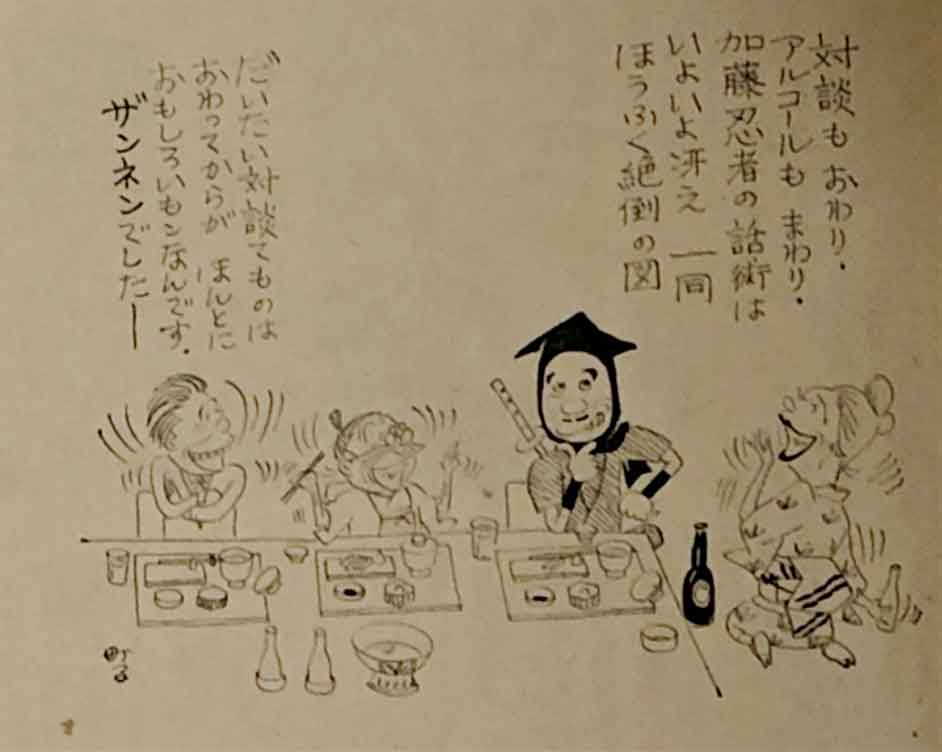 対談も おわり・
アルコールも まわり・
加藤忍者の話術は
いよいよ冴え 一同
ほうふく絶倒の図
だいたい対談てものは
おわってからが ほんとに
おもしろいもンなんです・
ザンネンでしたー
町子